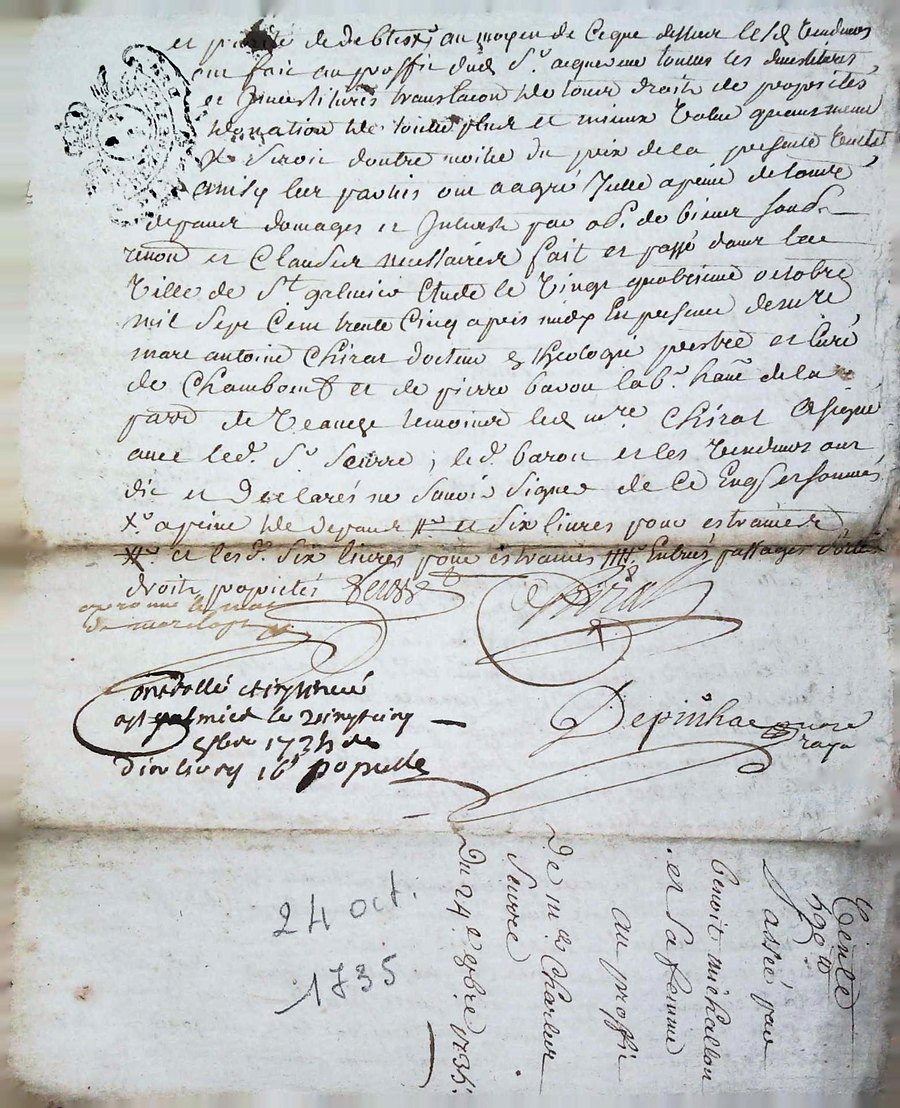 et de debtes au moyen de ce que dessus les d. vendeurs
ont fait au proffit dud. Sr. acquereur toutes les
et Investitures translacon de tous droit de proprietés
donation de toute plus et mieux value quand mesme
X seroit d'outre moitié du prix de la presente vente
ainsy les parties ont a agré a peine de tous
depans domages et Interests par ob. de biens soub.
renon et Clauses necessaires fait et passé dans la
Ville de St galmier Etude le Vingt quatrieme octobre
mil Sept Cent trente Cinq apres midy En presence de mre
marc antoine Chirat docteur en theologie prestre et Curé
de Chambœuf et de pierre baron lab. de la
parr de Veauge temoins led. mre Chirat a signé
avec led. Sr. Seurre, led. baron et les vendeurs ont
dit et declarés ne savoir signer de ce Enq. et sommés
X a peine de depans et six livres pour estraines
et lesd. six livres pour estraines passages
droit proprietés Seurre
aprouvé le mot
Chirat
Controllé et insinué
a st galmier le vingt cinq
8bre 1735
dix livres 16s
Depinhac nore
raya
24 oct.
1735
Vente
Passée par
benoit michallon
et sa femme
au proffit
De m e Charles
Seurre
Du 24e 8bre 1735.